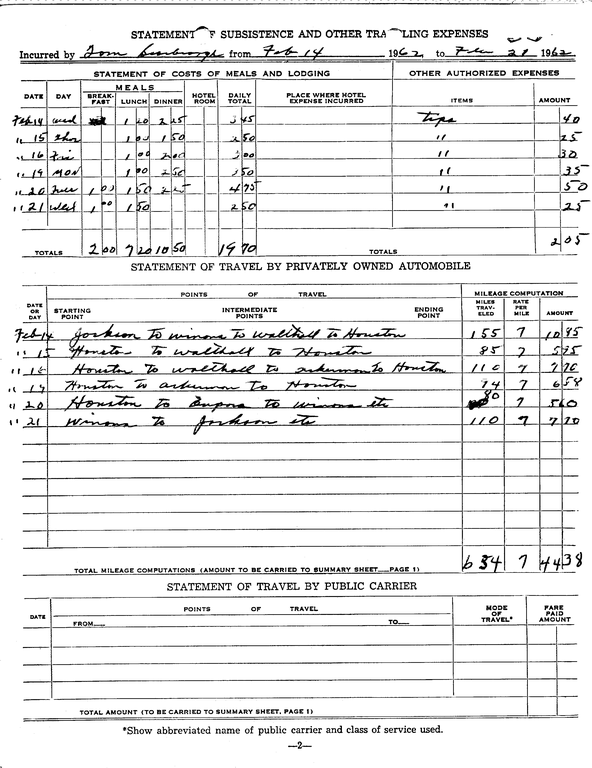 STATEMENT OF SUBSISTENCE AND OTHER TRAVELING EXPENSES
Incurred by Tom Scarbrough from Feb 14 1962 to Feb 21 1962
STATEMENT OF COSTS OF MEALS AND LODGING OTHER AUTHORIZED EXPENSES
DATE DAY MEALS BREAK-FAST LUNCH DINNER HOTEL ROOM DAILY TOTAL PLACE WHERE HOTEL EXPENSE INCURRED ITEMS AMOUNT
Feb 14 wed 1 20 2 25 3 45 tips 40
" 15 Thu 1 00 1 50 2 50 " 25
" 16 Fri 1 00 2 00 3 00 " 30
" 19 MON 1 00 2 50 3 50 " 35
" 20 Tues 1 00 1 50 2 25 4 75 " 50
" 21 Wed 1 00 1 50 2 50 " 25
TOTALS 2 00 7 20 10 50 19 70 TOTALS 2 05
STATEMENT OF TRAVEL BY PRIVATELY OWNED AUTOMOBILE
DATE OR DAY POINTS OF TRAVEL STARTING POINT INTERMEDIATE POINTS ENDING POINT MILEAGE COMPUTATION MILES TRAV-ELED RATE PER MILE AMOUNT
Feb 14 Jackson to winona to walthall to Houston 155 7 10 85
" 15 Houston to walthall to Houston 85 7 5 95
" 16 Houston to walthall to ackerman to Houston 110 7 7 70
" 19 Houston to ackerman to Houston 94 7 6 58
" 20 Houston to Eupora to winona etc 80 7 5 60
" 21 winona to Jackson etc 110 7 7 70
TOTAL MILEAGE COMPUTATIONS (AMOUNT TO BE CARRIED TO SUMMARY SHEET__PAGE 1) 634 7 44 38
STATEMENT OF TRAVEL BY PUBLIC CARRIER
DATE POINTS OF TRAVEL MODE OF TRAVEL* FARE PAID AMOUNT
FROM__ TO__
TOTAL AMOUNT (TO BE CARRIED TO SUMMARY SHEET, PAGE 1)
*Show abbreviated name of public carrier and class of service used.
—2—